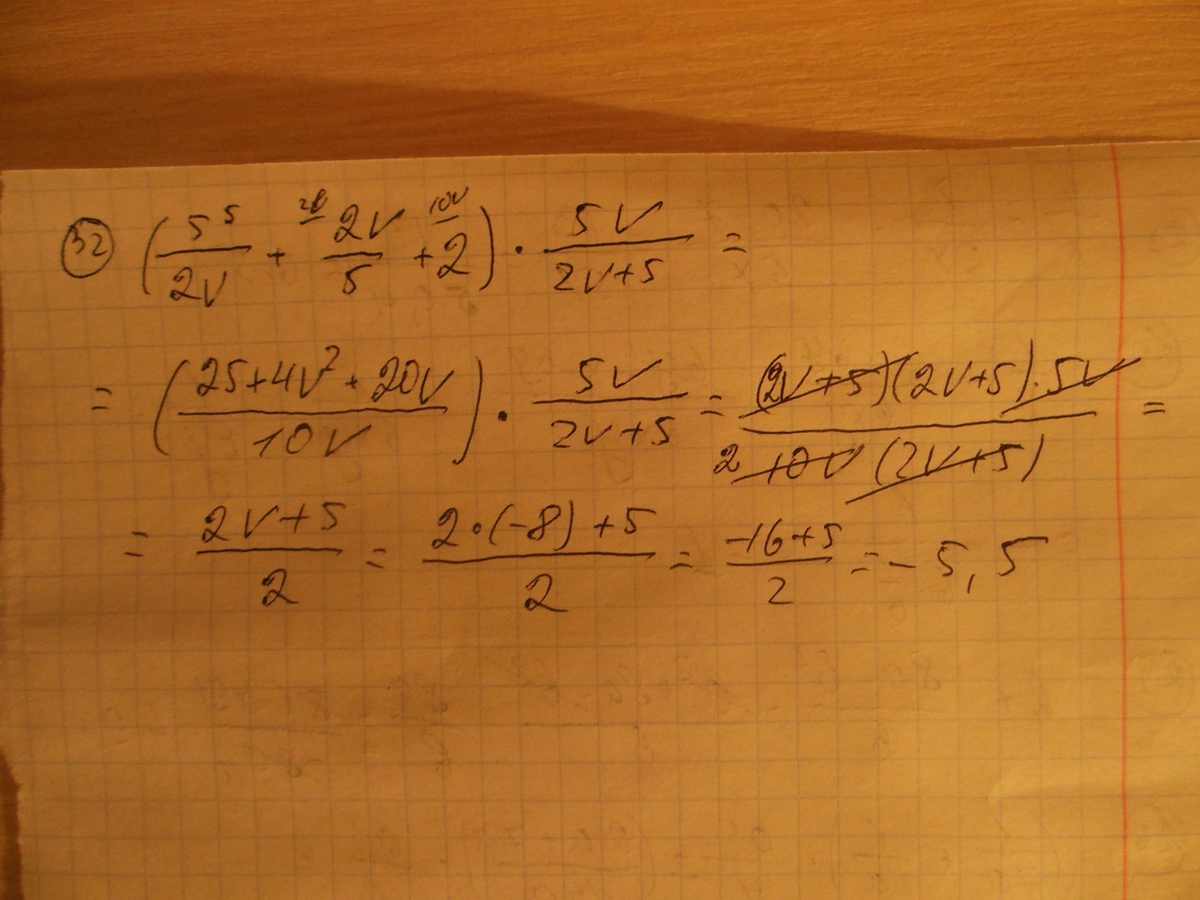 32 (5⁵/2v + ²ᵛ 2v/5 + ¹⁰ᵛ 2) · 5v/(2v+5) =
= ((25+4v²+20v)/10v) · 5v/(2v+5) = (2v+5)(2v+5)·5v / 2 10v (2v+5) =
= (2v+5)/2 = (2·(-8)+5)/2 = (-16+5)/2 = -5,5